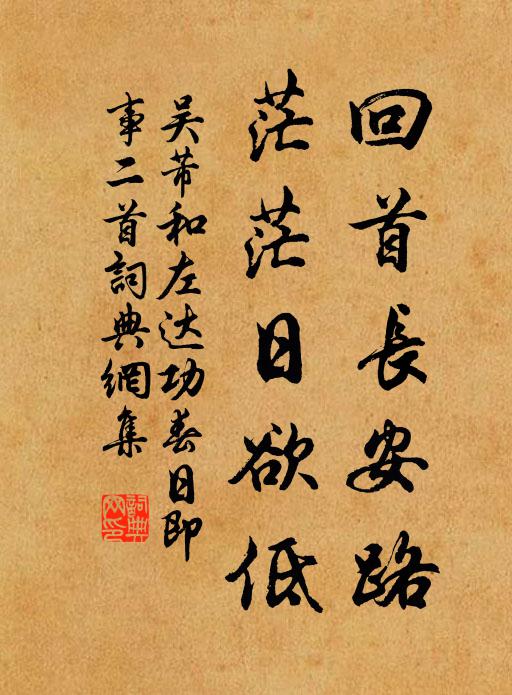 回首長安路
茫茫日欲低
吴芾和左达功春日即
事二首詞典網集
詞典
网印